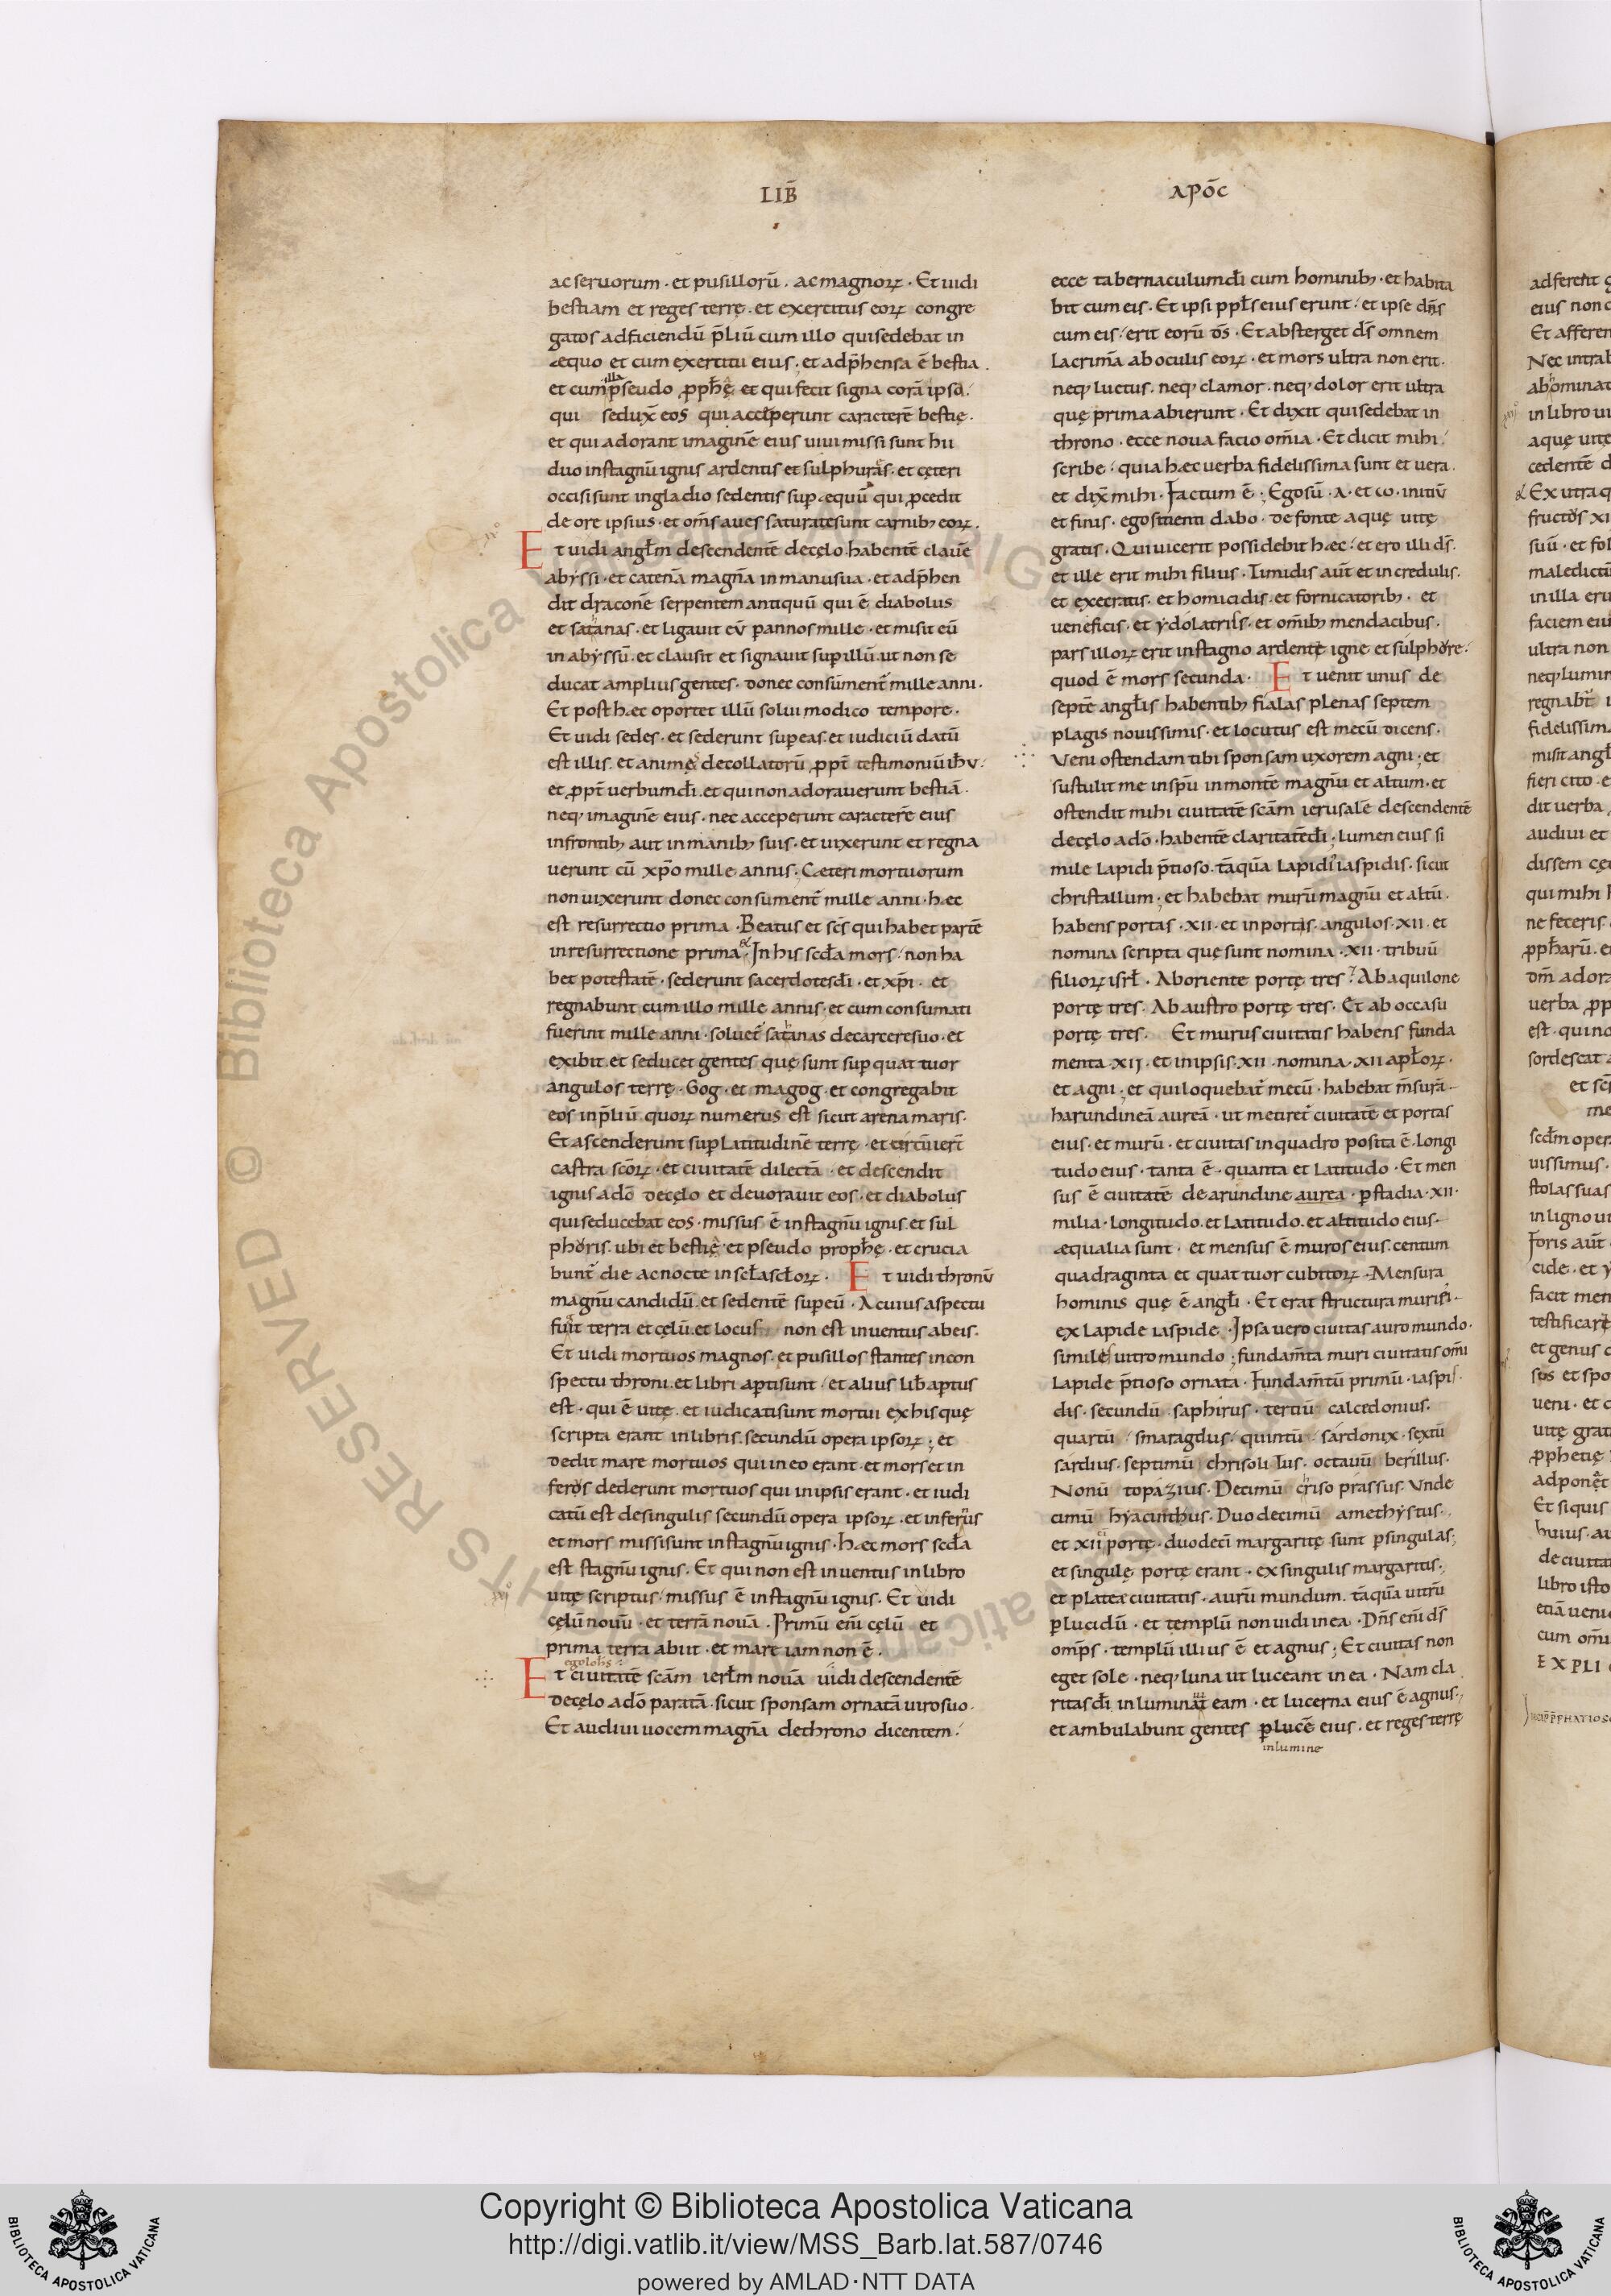 LIB̄
ac seruorum · et pusillorū · ac magnoꝝ · Et uidi
bestiam et reges terrę · et exercitus eoꝝ congre
gatos ad faciendū p̄liū cum illo qui sedebat in
æquo et cum exertitu eius · et adp̄hensa ē bestia ·
et cum illa pseudo ꝓph̄ę et qui fecit signa corā ipso ·
qui sedux̄ eos qui acceperunt caracterē bestię ·
et qui adorant imaginē eius uiui missi sunt hii
duo in stagnū ignis ardentis et sulphuris · et cęteri
occisi sunt in gladio sedentis suꝑ æquū qui ꝓcedit
de ore ipsius · et om̄s aues saturate sunt carnibꝫ eoꝝ ·
Et uidi angl̄m descendentē de cęlo habentē clauē
abyssi · et catenā magnā in manu sua · et adp̄hen
dit draconē serpentem antiquū qui ē diabolus
et satanas · et ligauit eū ꝑ annos mille · et misit eū
in abyssū · et clausit et signauit suꝑ illū · ut non se
ducat amplius gentes · donec consument̄ mille anni ·
Et post hæc oportet illū solui modico tempore ·
Et uidi sedes · et sederunt suꝑ eas · et iudiciū datū
est illis · et animę decollatorū ꝓpt̄ testimoniū ih̄u ·
et ꝓpt̄ uerbum dī · et qui non adorauerunt bestiā ·
neqꝫ imaginē eius · nec acceperunt caracterē eius
in frontibꝫ aut in manibꝫ suis · et uixerunt et regna
uerunt cū xp̄o mille annis · Cæteri mortuorum
non uixerunt donec consument̄ mille anni · hæc
est resurrectio prima · Beatus et sc̄s qui habet partē
in resurrectione prima · In his scd̄a mors non ha
bet potestatē · sed erunt sacerdotes dī · et xp̄i · et
regnabunt cum illo mille annis · et cum consumati
fuerint mille anni · soluet̄ satanas de carcere suo · et
exibit et seducet gentes quę sunt suꝑ quattuor
angulos terrę · Gog · et magog · et congregabit
eos in p̄liū quoꝝ numerus est sicut arena maris ·
Et ascenderunt suꝑ Latitudinē terrę · et circūiert̄
castra scōꝝ · et ciuitatē dilectā · et descendit
ignis a dō de cęlo et deuorauit eos · et diabolus
qui seducebat eos · missus ē in stagnū ignis et sul
phoris · ubi et bestię · et pseudo proph̄ę · et crucia
bunt̄ die ac nocte in scl̄a scl̄oꝝ · Et uidi thronū
magnū candidū et sedentē suꝑ eū · A cuius aspectu
fugit terra et cęlū · et locus non est inuentus ab eis ·
Et uidi mortuos magnos · et pusillos stantes in con
spectu throni · et libri aꝑti sunt · et alius lib̄ aꝑtus
est · qui ē uitę · et iudicati sunt mortui ex his quę
scripta erant in libris · secundū opera ipsoꝝ ; et
dedit mare mortuos qui in eo erant · et mors et in
feros dederunt mortuos qui in ipsis erant · et iudi
catū est de singulis secundū opera ipsoꝝ · et inferus
et mors missi sunt in stagnū ignis · hæc mors scd̄a
est stagnū ignis · Et qui non est inuentus in libro
uitę scriptus · missus ē in stagnū ignis · Et uidi
cęlū nouū · et terrā nouā · Primū eni̅ cęlū et
prima terra abiit · et mare iam non ē ·
ego ioh̄s
Et ciuitatē scām ierl̄m nouā uidi descendentē
de cęlo a dō paratā · sicut sponsam ornatā uiro suo ·
Et audiui uocem magnā de throno dicentem ·
APŌC
ecce tabernaculum dī cum hominibꝫ · et habita
bit cum eis · Et ipsi ppl̄s eius erunt · et ipse dn̄s
cum eis · erit eorū ds̄ · Et absterget ds̄ omnem
Lacrimā ab oculis eoꝝ · et mors ultra non erit ·
neqꝫ luctus · neqꝫ clamor · neqꝫ dolor erit ultra
quę prima abierunt · Et dixit qui sedebat in
throno · ecce noua facio om̄ia · Et dicit mihi
scribe · quia hæc uerba fidelissima sunt et uera ·
et dix̄ mihi · Factum ē · Ego sū · A · et ω · initiū
et finis · ego sitienti dabo · de fonte aquę uitę
gratis · Qui uicerit possidebit hæc · et ero illi ds̄ ·
et ille erit mihi filius · Timidis aūt et incredulis ·
et execratis · et homicidis · et fornicatoribꝫ · et
ueneficis · et ydolatris · et om̄ibꝫ mendacibus ·
pars illoꝝ erit in stagno ardentę igne et sulphore ·
quod ē mors secunda · Et uenit unus de
septē angl̄is habentibꝫ fialas plenas septem
plagis nouissimis · et locutus est mecū dicens ·
Veni ostendam tibi sponsam uxorem agni · et
sustulit me in spū in montē magnū et altum · et
ostendit mihi ciuitatē scām ierusalē descendentē
de cęlo a dō · habentē claritatē dī ; lumen eius si
mile Lapidi p̄tioso · tāquā Lapidi iaspidis · sicut
christallum ; et habebat murū magnū et altū ·
habens portas · XII · et in portis · angulos · XII · et
nomina scripta quę sunt nomina · XII · tribuū
filioꝝ isrl̄ · Ab oriente portę tres · Ab aquilone
portę tres · Ab austro portę tres · Et ab occasu
portę tres · Et murus ciuitatis habens funda
menta XII · et in ipsis · XII · nomina · XII apl̄oꝝ ·
et agni · et qui loquebat̄ mecū · habebat m̄surā ·
harundineā aureā · ut metiret̄ ciuitatē et portas
eius · et murū · et ciuitas in quadro posita ē · Longi
tudo eius · tanta ē · quanta et Latitudo · Et men
sus ē ciuitatē de arundine aurea · ꝑ stadia · XII ·
milia · Longitudo · et Latitudo · et altitudo eius ·
æqualia sunt · et mensus ē muros eius · centum
quadraginta et quattuor cubitoꝝ · Mensura
hominis quę ē angl̄i · Et erat structura muri
ex Lapide iaspide · Ipsa uero ciuitas auro mundo ·
simile uitro mundo ; fundam̄ta muri ciuitatis om̄i
Lapide p̄tioso ornata · Fundam̄tū primū · iaspi
dis · secundū · saphirus · tertiū calcedonius ·
quartū smaragdus · quintū sardonix · sextū
sardius · septimū chrisolitus · octauū berillus ·
Nonū topazius · Decimū criso prassus · Vnde
cimū hyacinthus · Duodecimū amethystus ·
et XII portę · duodecī margaritę sunt ꝑ singulas ;
et singulę portę erant · ex singulis margaritis ·
et plateæ ciuitatis · aurū mundum · tāquā uitrū
ꝑlucidū · et templū non uidi in ea · Dn̄s eni̅ ds̄
omp̄s · templū illius ē et agnus ; Et ciuitas non
eget sole · neqꝫ luna ut luceant in ea · Nam cla
ritas dī inluminat eam · et lucerna eius ē agnus ·
et ambulabunt gentes ꝑ lucē eius · et reges terrę
in lumine
adferent
eius non
Et afferen
Nec intrab
abominat
in libro ui
aquę uitę
cedentē d
Ex utraq
fructos XI
suū · et fol
maledictū
in illa eru
faciem eiu
ultra non
neqꝫ lumin
regnabt̄
fidelissim
misit angl̄
fieri cito · e
dit uerba
audiui et
dissem
qui mihi
ne feceris ·
ꝓpharū · e
dm̄ adora
uerba ꝓp
est · qui no
sordescat
et sc̄
me
scd̄m oper
uissimus ·
stolas suas
in ligno ui
Foris aūt
cide · et y
facit men
testificare
et genus
sp̄s et spo
ueni · et
uitę grat
ꝓphetię
adponet
Et siquis
huius · au
de ciuita
libro isto
etiā ueni
cum om̄i
EXPLI
Copyright © Biblioteca Apostolica Vaticana
http://digi.vatlib.it/view/MSS_Barb.lat.587/0746
powered by AMLAD·NTT DATA
BIBLIOTECA APOSTOLICA VATICANA
BIBLIOTECA APOSTOLICA VATICANA
© Biblioteca Apostolica Vaticana ALL RIGHTS RESERVED